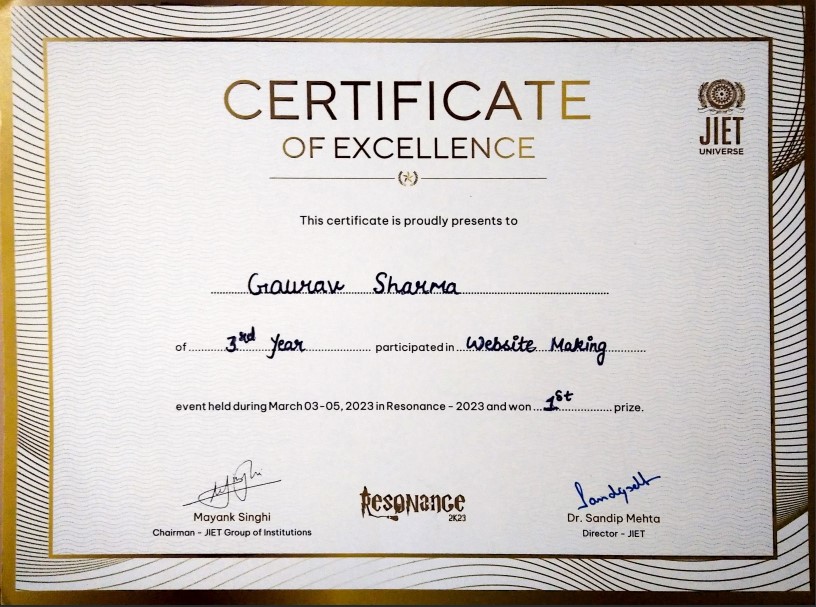 CERTIFICATE
OF EXCELLENCE
JIET
UNIVERSE
This certificate is proudly presents to
Gaurav Sharma
of 3rd Year participated in Website Making
event held during March 03-05, 2023 in Resonance - 2023 and won 1st prize.
Mayank Singhi
Chairman - JIET Group of Institutions
Resonance
2K23
Dr. Sandip Mehta
Director - JIET